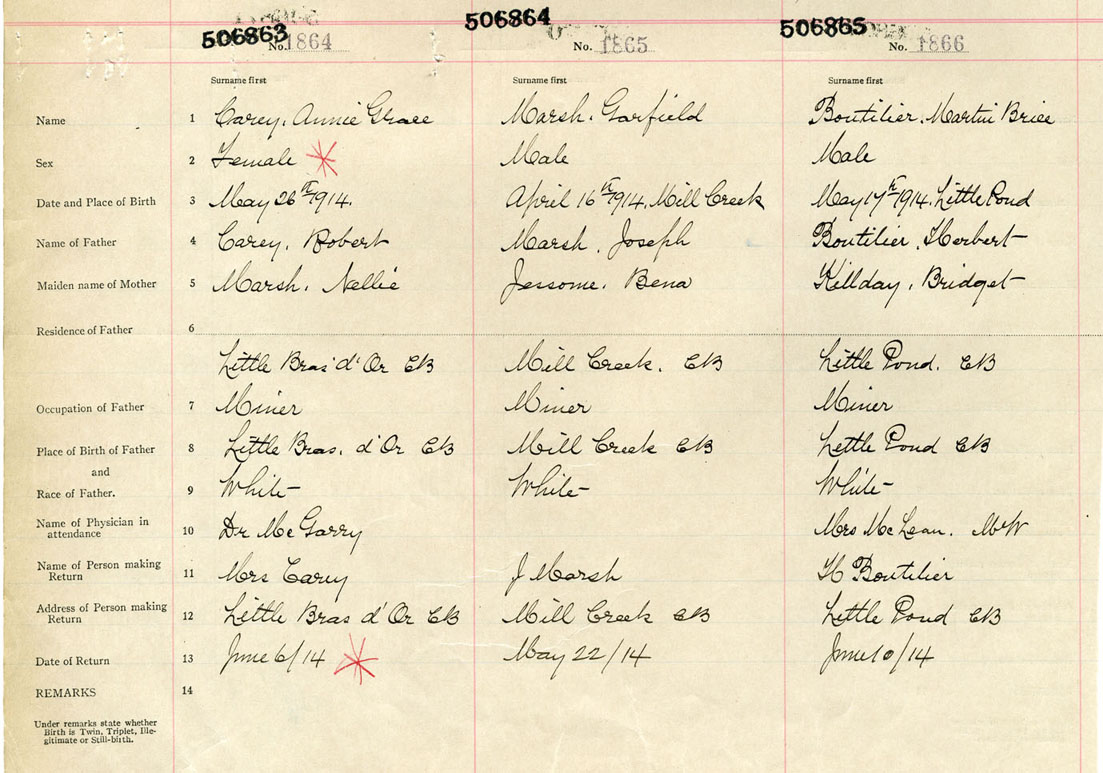 506863 506864 506865
No. 1864 No. 1865 No. 1866
Surname first Surname first Surname first
Name 1 Carey, Annie Grace Marsh, Garfield Boutilier, Martin Brice
Sex 2 Female Male Male
Date and Place of Birth 3 May 26th 1914. April 16th 1914, Mill Creek May 17th 1914. Little Pond
Name of Father 4 Carey, Robert Marsh, Joseph Boutilier, Herbert
Maiden name of Mother 5 Marsh, Nellie Jessome, Bena Killday, Bridget
Residence of Father 6
Little Bras d'Or CB Mill Creek. CB Little Pond. CB
Occupation of Father 7 Miner Miner Miner
Place of Birth of Father 8 Little Bras. d'Or CB Mill Creek CB Little Pond CB
and
Race of Father. 9 White White White
Name of Physician in
attendance 10 Dr McGarry Mrs McLean. MW
Name of Person making
Return 11 Mrs Carey J Marsh H Boutilier
Address of Person making
Return 12 Little Bras d'Or CB Mill Creek CB Little Pond CB
Date of Return 13 June 6/14 May 22/14 June 10/14
REMARKS 14
Under remarks state whether
Birth is Twin, Triplet, Ille-
gitimate or Still-birth.